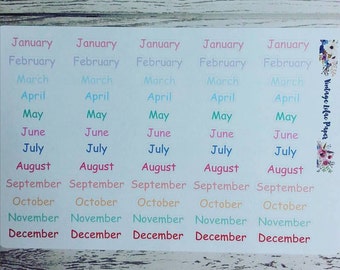 January January January January January
February February February February February
March March March March March
April April April April April
May May May May May
June June June June June
July July July July July
August August August August August
September September September September September
October October October October October
November November November November November
December December December December December
Vintage Lilie Paper